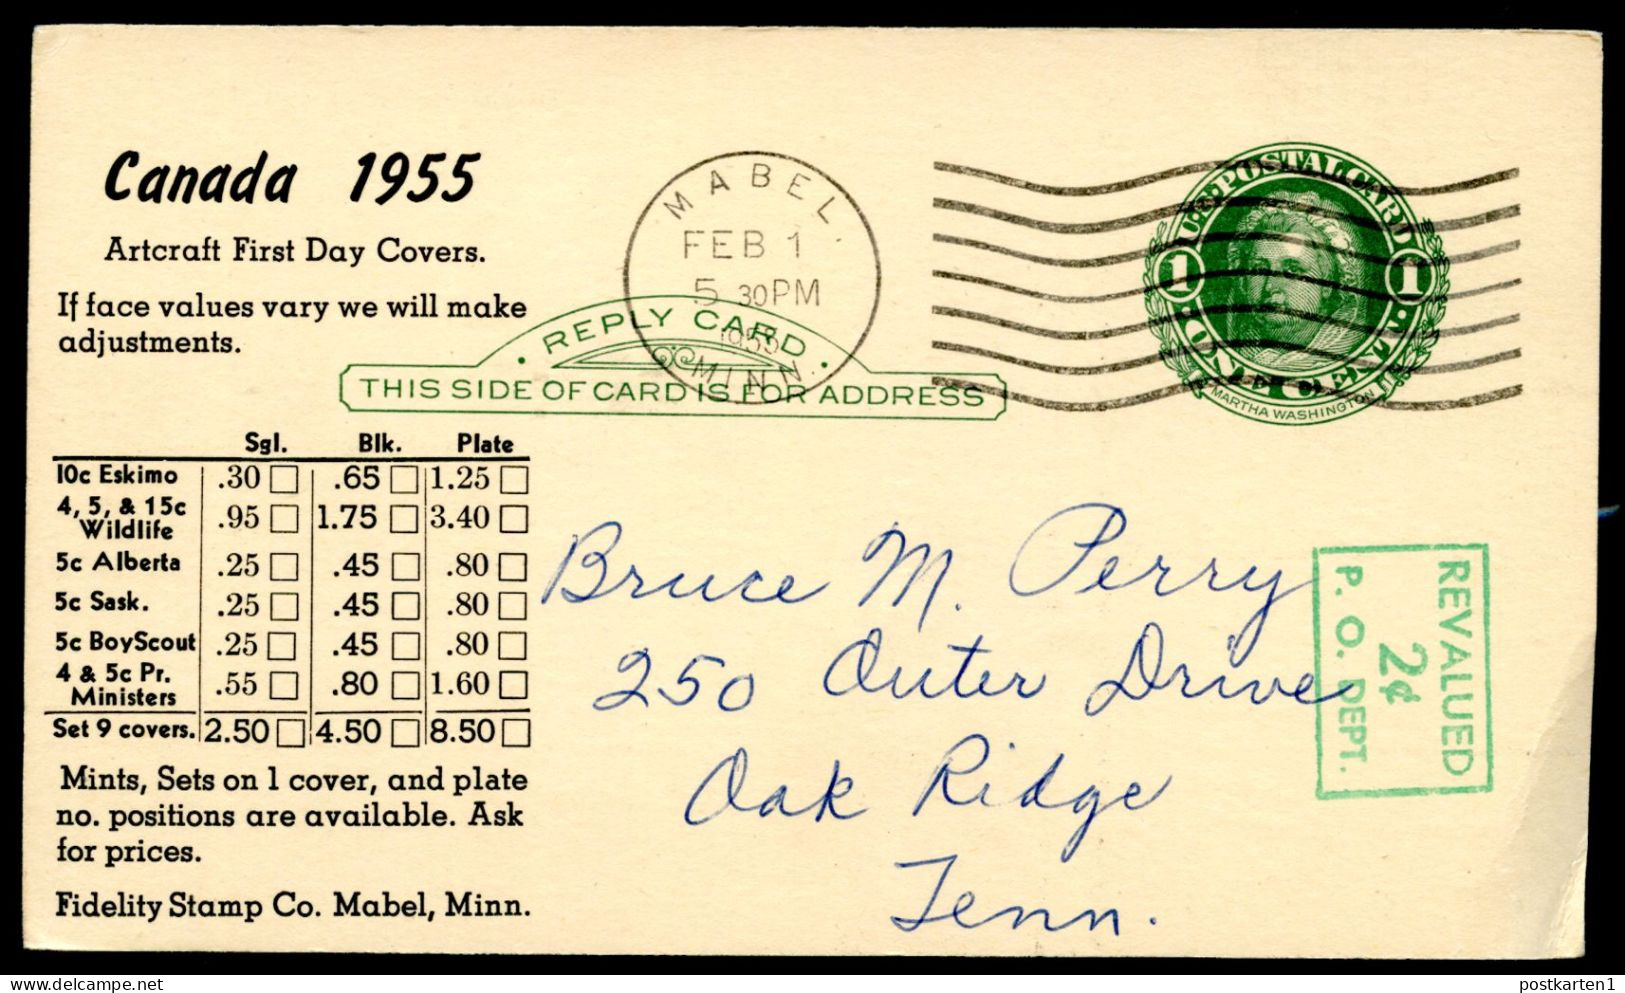 Canada 1955
Artcraft First Day Covers.
If face values vary we will make
adjustments.
MABEL
FEB 1
5 30 PM
1955
MINN.
· REPLY CARD ·
THIS SIDE OF CARD IS FOR ADDRESS
U·S·POSTAL CARD
1 1
·ONE CENT·
MARTHA WASHINGTON
Sgl. Blk. Plate
10c Eskimo .30 .65 1.25
4, 5, & 15c
Wildlife .95 1.75 3.40
5c Alberta .25 .45 .80
5c Sask. .25 .45 .80
5c BoyScout .25 .45 .80
4 & 5c Pr.
Ministers .55 .80 1.60
Set 9 covers. 2.50 4.50 8.50
Mints, Sets on 1 cover, and plate
no. positions are available. Ask
for prices.
Fidelity Stamp Co. Mabel, Minn.
Bruce M. Perry
250 Outer Drive
Oak Ridge
Tenn.
REVALUED
2¢
P. O. DEPT.
postkarten1